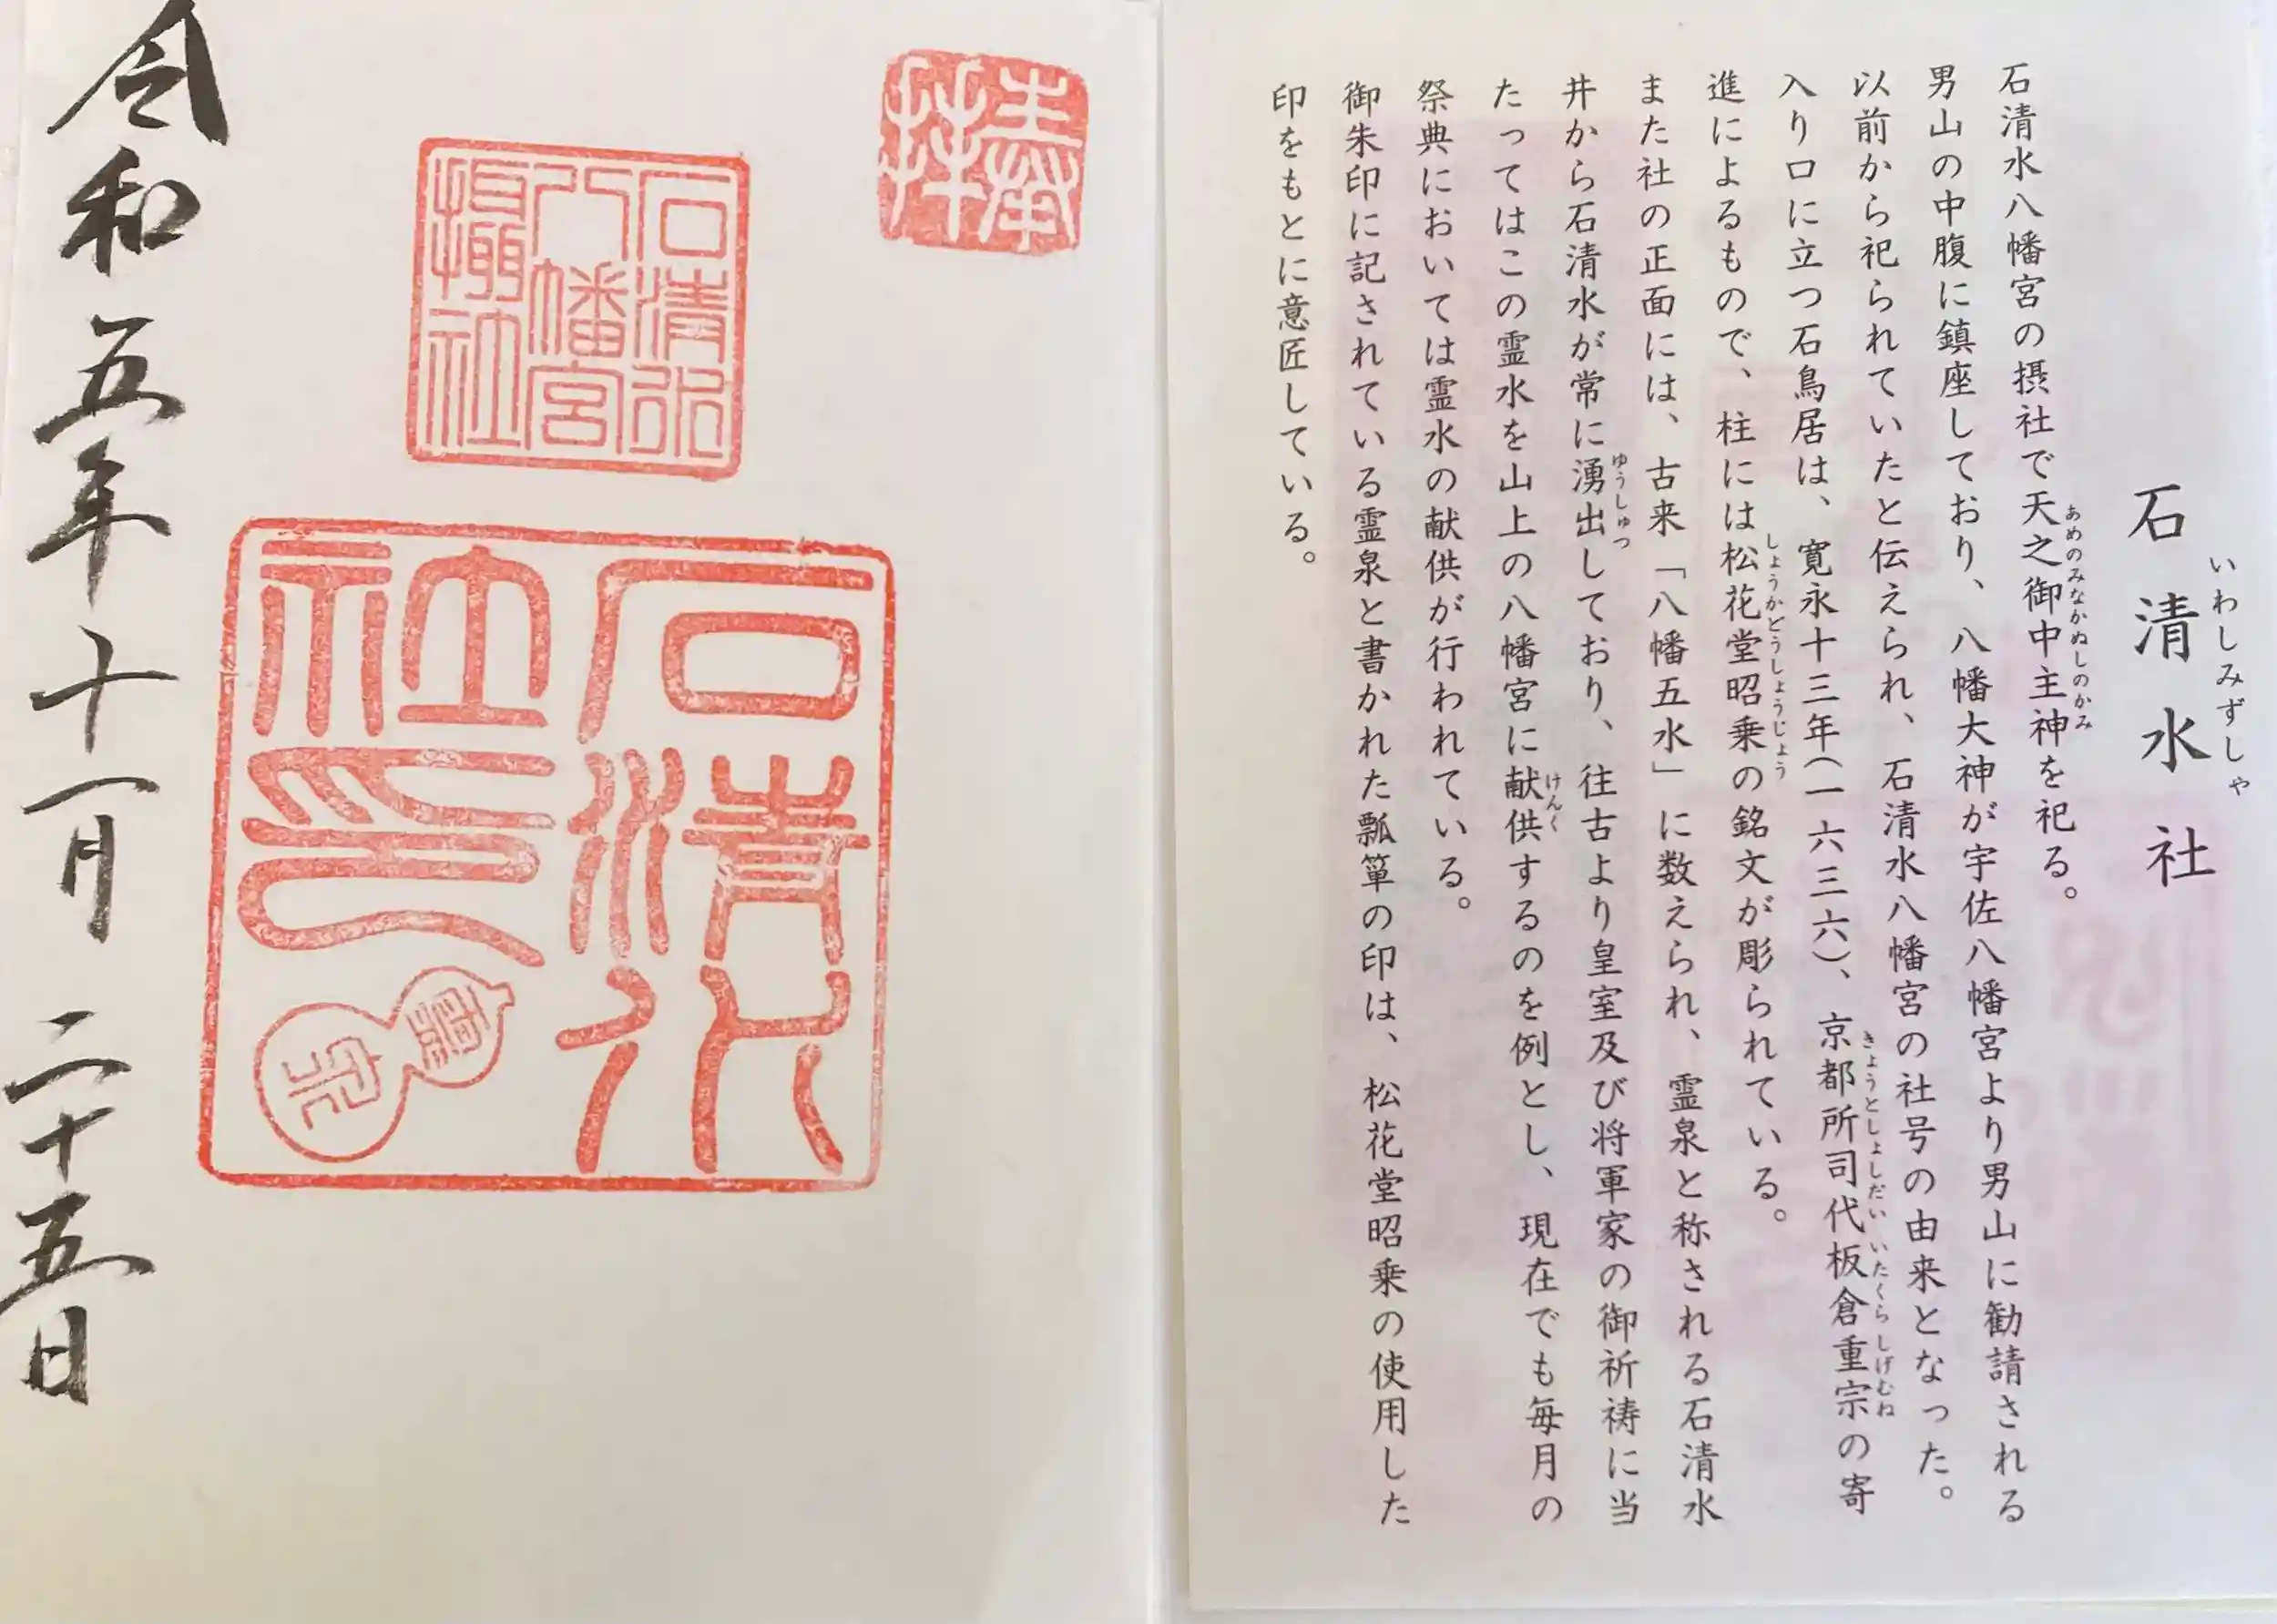 石清水社
いわしみずしゃ
石清水八幡宮の摂社で天之御中主神を祀る。
あめのみなかぬしのかみ
男山の中腹に鎮座しており、八幡大神が宇佐八幡宮より男山に勧請される
以前から祀られていたと伝えられ、石清水八幡宮の社号の由来となった。
入り口に立つ石鳥居は、寛永十三年(一六三六)、京都所司代板倉重宗の寄
きょうとしょしだい いたくら しげむね
進によるもので、柱には松花堂昭乗の銘文が彫られている。
しょうかどうしょうじょう
また社の正面には、古来「八幡五水」に数えられ、霊泉と称される石清水
井から石清水が常に湧出しており、往古より皇室及び将軍家の御祈祷に当
ゆうしゅつ
たってはこの霊水を山上の八幡宮に献供するのを例とし、現在でも毎月の
けんく
祭典においては霊水の献供が行われている。
御朱印に記されている霊泉と書かれた瓢箪の印は、松花堂昭乗の使用した
印をもとに意匠している。
奉拝
石清水
八幡宮
摂社
石清水
社印
霊泉
令和五年十一月二十五日